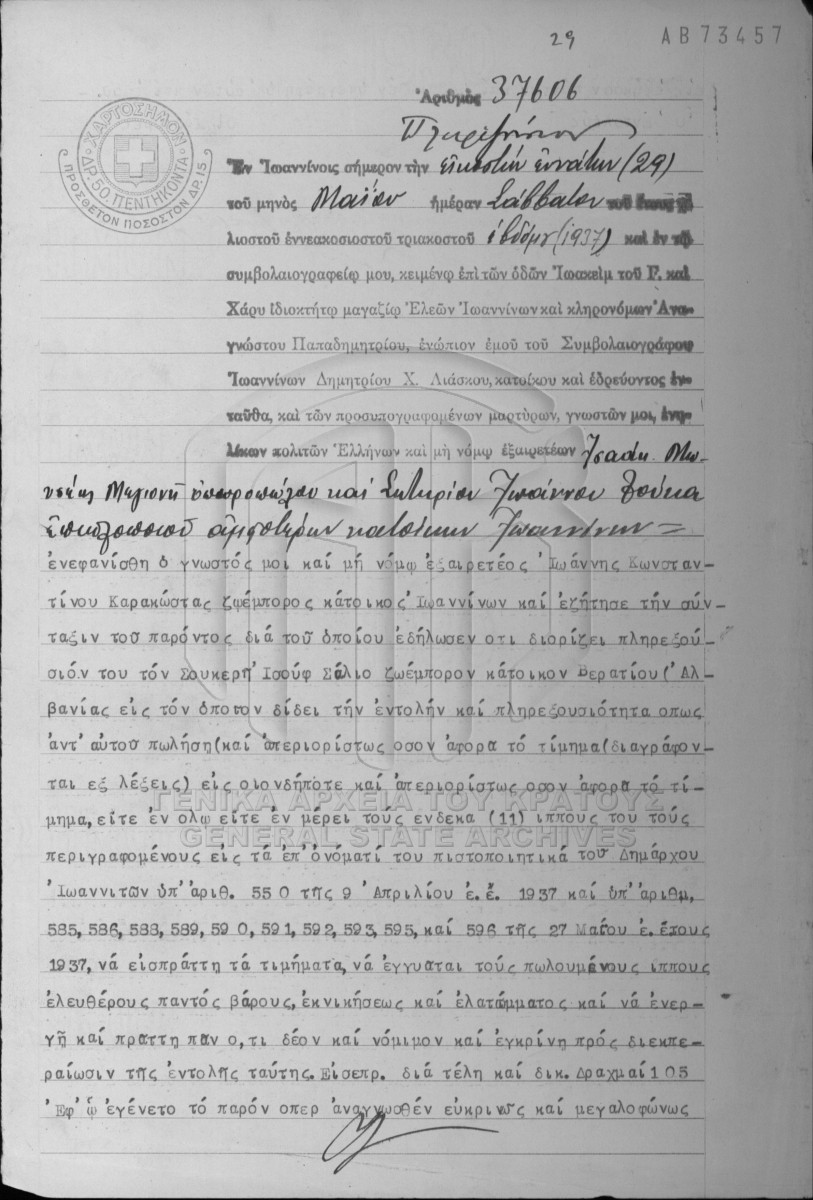 29
ΑΒ73457
Ἀριθμὸς 37606
Πληρεξούσιον
ΧΑΡΤΟΣΗΜΟΝ
ΔΡ. 50. ΠΕΝΤΗΚΟΝΤΑ
ΠΡΟΣΘΕΤΟΝ ΠΟΣΟΣΤΟΝ ΔΡ. 15
Ἐν Ἰωαννίνοις σήμερον τὴν εἰκοστήν ἐννάτην (29)
τοῦ μηνὸς Μαΐου ἡμέραν Σάββατον τοῦ ἔτους χι
λιοστοῦ ἐννεακοσιοστοῦ τριακοστοῦ ἑβδόμου (1937) καὶ ἐν τῷ
συμβολαιογραφείῳ μου, κειμένῳ ἐπὶ τῶν ὁδῶν Ἰωακεὶμ τοῦ Γ. καὶ
Χάρυ ἰδιοκτήτῳ μαγαζίῳ Ἐλεῶν Ἰωαννίνων καὶ κληρονόμων Ἀνα-
γνώστου Παπαδημητρίου, ἐνώπιον ἐμοῦ τοῦ Συμβολαιογράφου
Ἰωαννίνων Δημητρίου Χ. Λιάσκου, κατοίκου καὶ ἑδρεύοντος ἐν-
ταῦθα, καὶ τῶν προσυπογραφομένων μαρτύρων, γνωστῶν μοι, ἐνη-
λίκων πολιτῶν Ἑλλήνων καὶ μὴ νόμῳ ἐξαιρετέων Ἰσαάκ Μω-
υσέως Μεγιονῆ ὀπωροπώλου καί Σωτηρίου Ἰωάννου Δούκα
ἐπιπλοποιοῦ ἀμφοτέρων κατοίκων Ἰωαννίνων =
ἐνεφανίσθη ὁ γνωστός μοι καί μή νόμῳ ἐξαιρετέος Ἰωάννης Κωνσταν-
τίνου Καρακώστας ζωέμπορος κάτοικος Ἰωαννίνων καί ἐζήτησε τήν σύν-
ταξιν τοῦ παρόντος διά τοῦ ὁποίου ἐδήλωσεν οτι διορίζει πληρεξού-
σιόν του τόν Σουκερῆ Ἰσούφ Σάλιο ζωέμπορον κάτοικον Βερατίου (Ἀλ-
βανίας εἰς τόν ὁποῖον δίδει τήν ἐντολήν καί πληρεξουσιότητα οπως
ἀντ' αὐτοῦ πωλήση (καί ἀπεριορίστως οσον ἀφορα τό τίμημα (διαγράφον-
ται εξ λέξεις) εἰς οιονδήποτε καί ἀπεριορίστως οσον ἀφορα τό τί-
μημα, εἴτε ἐν ολω εἴτε ἐν μέρει τούς ενδεκα (11) ιππους του τούς
περιγραφομένους εἰς τά ἐπ' ὀνόματί του πιστοποιητικά τοῦ Δημάρχου
Ἰωαννιτῶν ὑπ' ἀριθ. 550 τῆς 9 Ἀπριλίου ἐ. ἔ. 1937 καί ὑπ' ἀριθμ,
585, 586, 588, 589, 590, 591, 592, 593, 595, καί 596 τῆς 27 Μαΐου ἐ. ἔτους
1937, νά εἰσπράττη τά τιμήματα, νά ἐγγυαται τούς πωλουμένους ιππους
ἐλευθέρους παντός βάρους, ἐκνικήσεως καί ἐλατώμματος καί νά ἐνερ-
γῆ καί πραττη παν ο,τι δέον καί νόμιμον καί ἐγκρίνη πρός διεκπε-
ραίωσιν τῆς ἐντολῆς ταύτης. Εἰσεπρ. διά τέλη καί δικ. Δραχμαί 105
Ἐφ' ᾧ ἐγένετο τό παρόν οπερ ἀναγνωσθέν εὐκρινῶς καί μεγαλοφώνως
ΓΕΝΙΚΑ ΑΡΧΕΙΑ ΤΟΥ ΚΡΑΤΟΥΣ
GENERAL STATE ARCHIVES